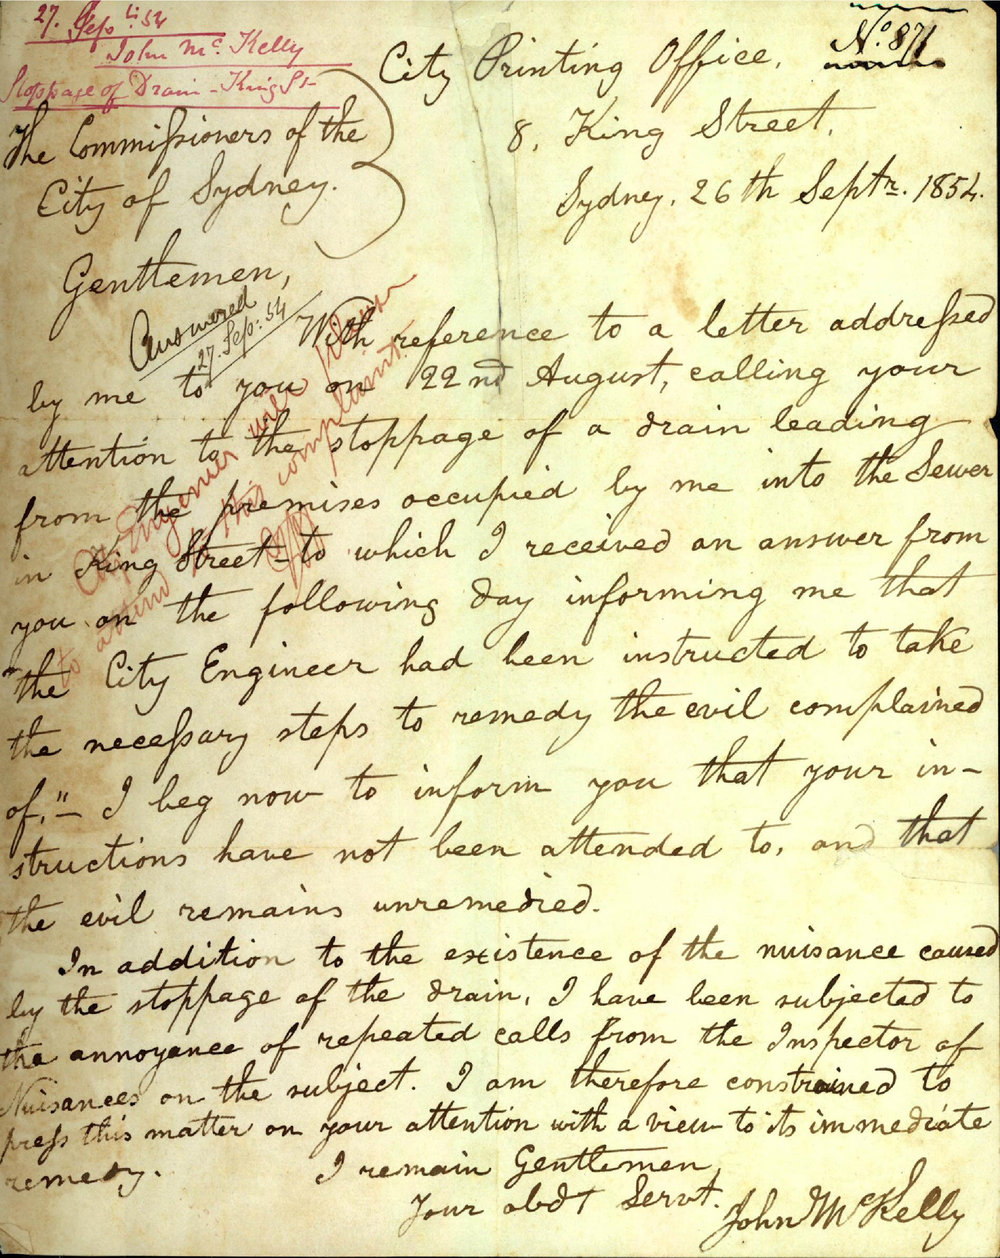 27. Sep 54
John Mc. Kelly
Stoppage of Drain - King St -
No. 871
City Printing Office,
8, King Street,
Sydney, 26th Septr. 1854.
The Commissioners of the
City of Sydney.
Gentlemen,
Answered
27. Sep: 54
City Engineer will please
to attend to this complaint
With reference to a letter addressed
by me to you on 22nd August, calling your
attention to the stoppage of a drain leading
from the premises occupied by me into the Sewer
in King Street - to which I received an answer from
you on the following day informing me that
"the City Engineer had been instructed to take
the necessary steps to remedy the evil complained
of." - I beg now to inform you that your in-
structions have not been attended to, and that
the evil remains unremedied.
In addition to the existence of the nuisance caused
by the stoppage of the drain, I have been subjected to
the annoyance of repeated calls from the Inspector of
Nuisances on the subject. I am therefore constrained to
press this matter on your attention with a view to its immediate
remedy.
I remain Gentlemen,
Your obdt Servt.
John McKelly